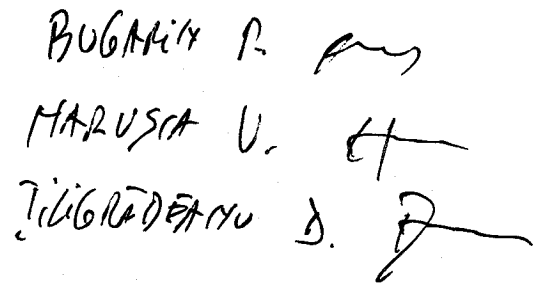 BUGARIN P.
MARUSCA V.
ȚILIGRĂDEANU D.